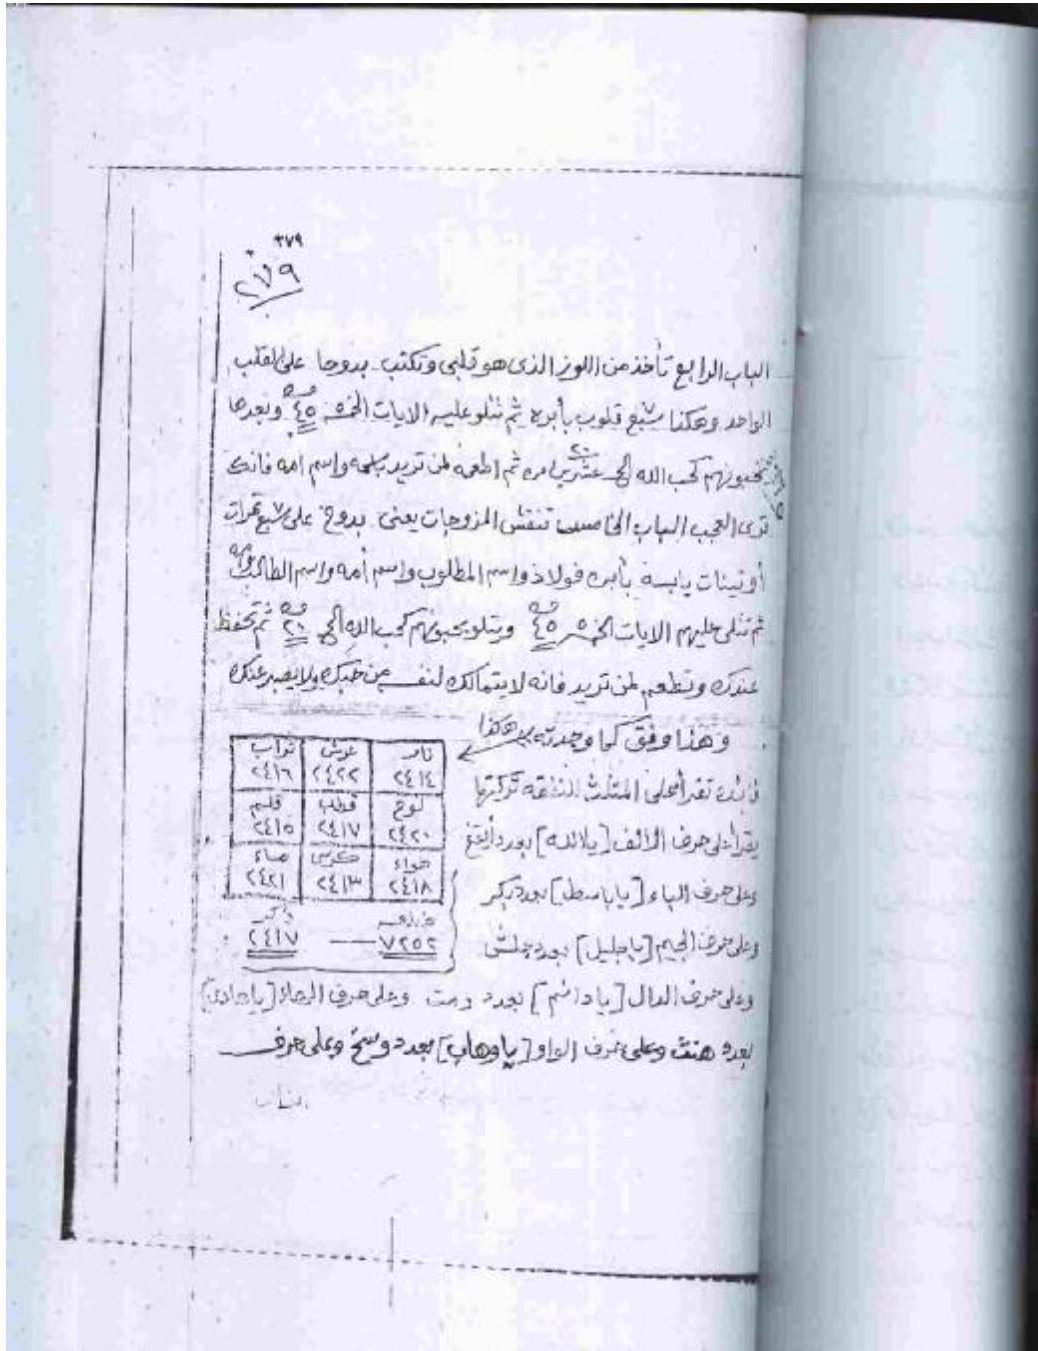 ٣٧٩
٢٧٩
الباب الرابع تأخذ من اللوز الذى هو قلبى وتكتب بدوحا على القلب
الواحد وهكذا سبع قلوب بأبره ثم تتلو عليه الايات الخمسه ٤٥ مره وبعدها
يحبونهم كحب الله الخ عشرين ٢٠ مره ثم اطعمه لمن تريد باسمه واسم امه فانك
ترى العجب الباب الخامس تنقش المزوجات يعنى بدوح على سبع تمرات
أو تينات يابسة بأبره فولاذ واسم المطلوب واسم أمه واسم الطالب
ثم تتلى عليهم الايات الخمسه ٤٥ مره وتتلو يحبونهم كحب الله الخ ٢٠ مره ثم تحفظ
عندك وتطعم لمن تريد فانه لا يتمالك لنفسه من حبك ولا يصبر عنك
وهذا وفق كما وجدته هكذا
نار عرش تراب
٢٤١٤ ٢٤٢٢ ٢٤١٦
لوح قطب قلم
٢٤٢٠ ٢٤١٧ ٢٤١٥
هواء كرسى ماء
٢٤١٨ ٢٤١٣ ٢٤٢١
٧٢٥٢ — ٢٤١٧
فائدة تقرأ على المثلث
يقرأ على حرف الالف [يا الله] بعدد أيقغ
وعلى حرف الباء [يا باسط] بعدد بكر
وعلى حرف الجيم [يا جليل] بعدد جلش
وعلى حرف الدال [يا دائم] بعدد دمت وعلى حرف الهاء [يا هادى]
بعدد هنث وعلى حرف الواو [يا وهاب] بعدد وسخ وعلى حرف